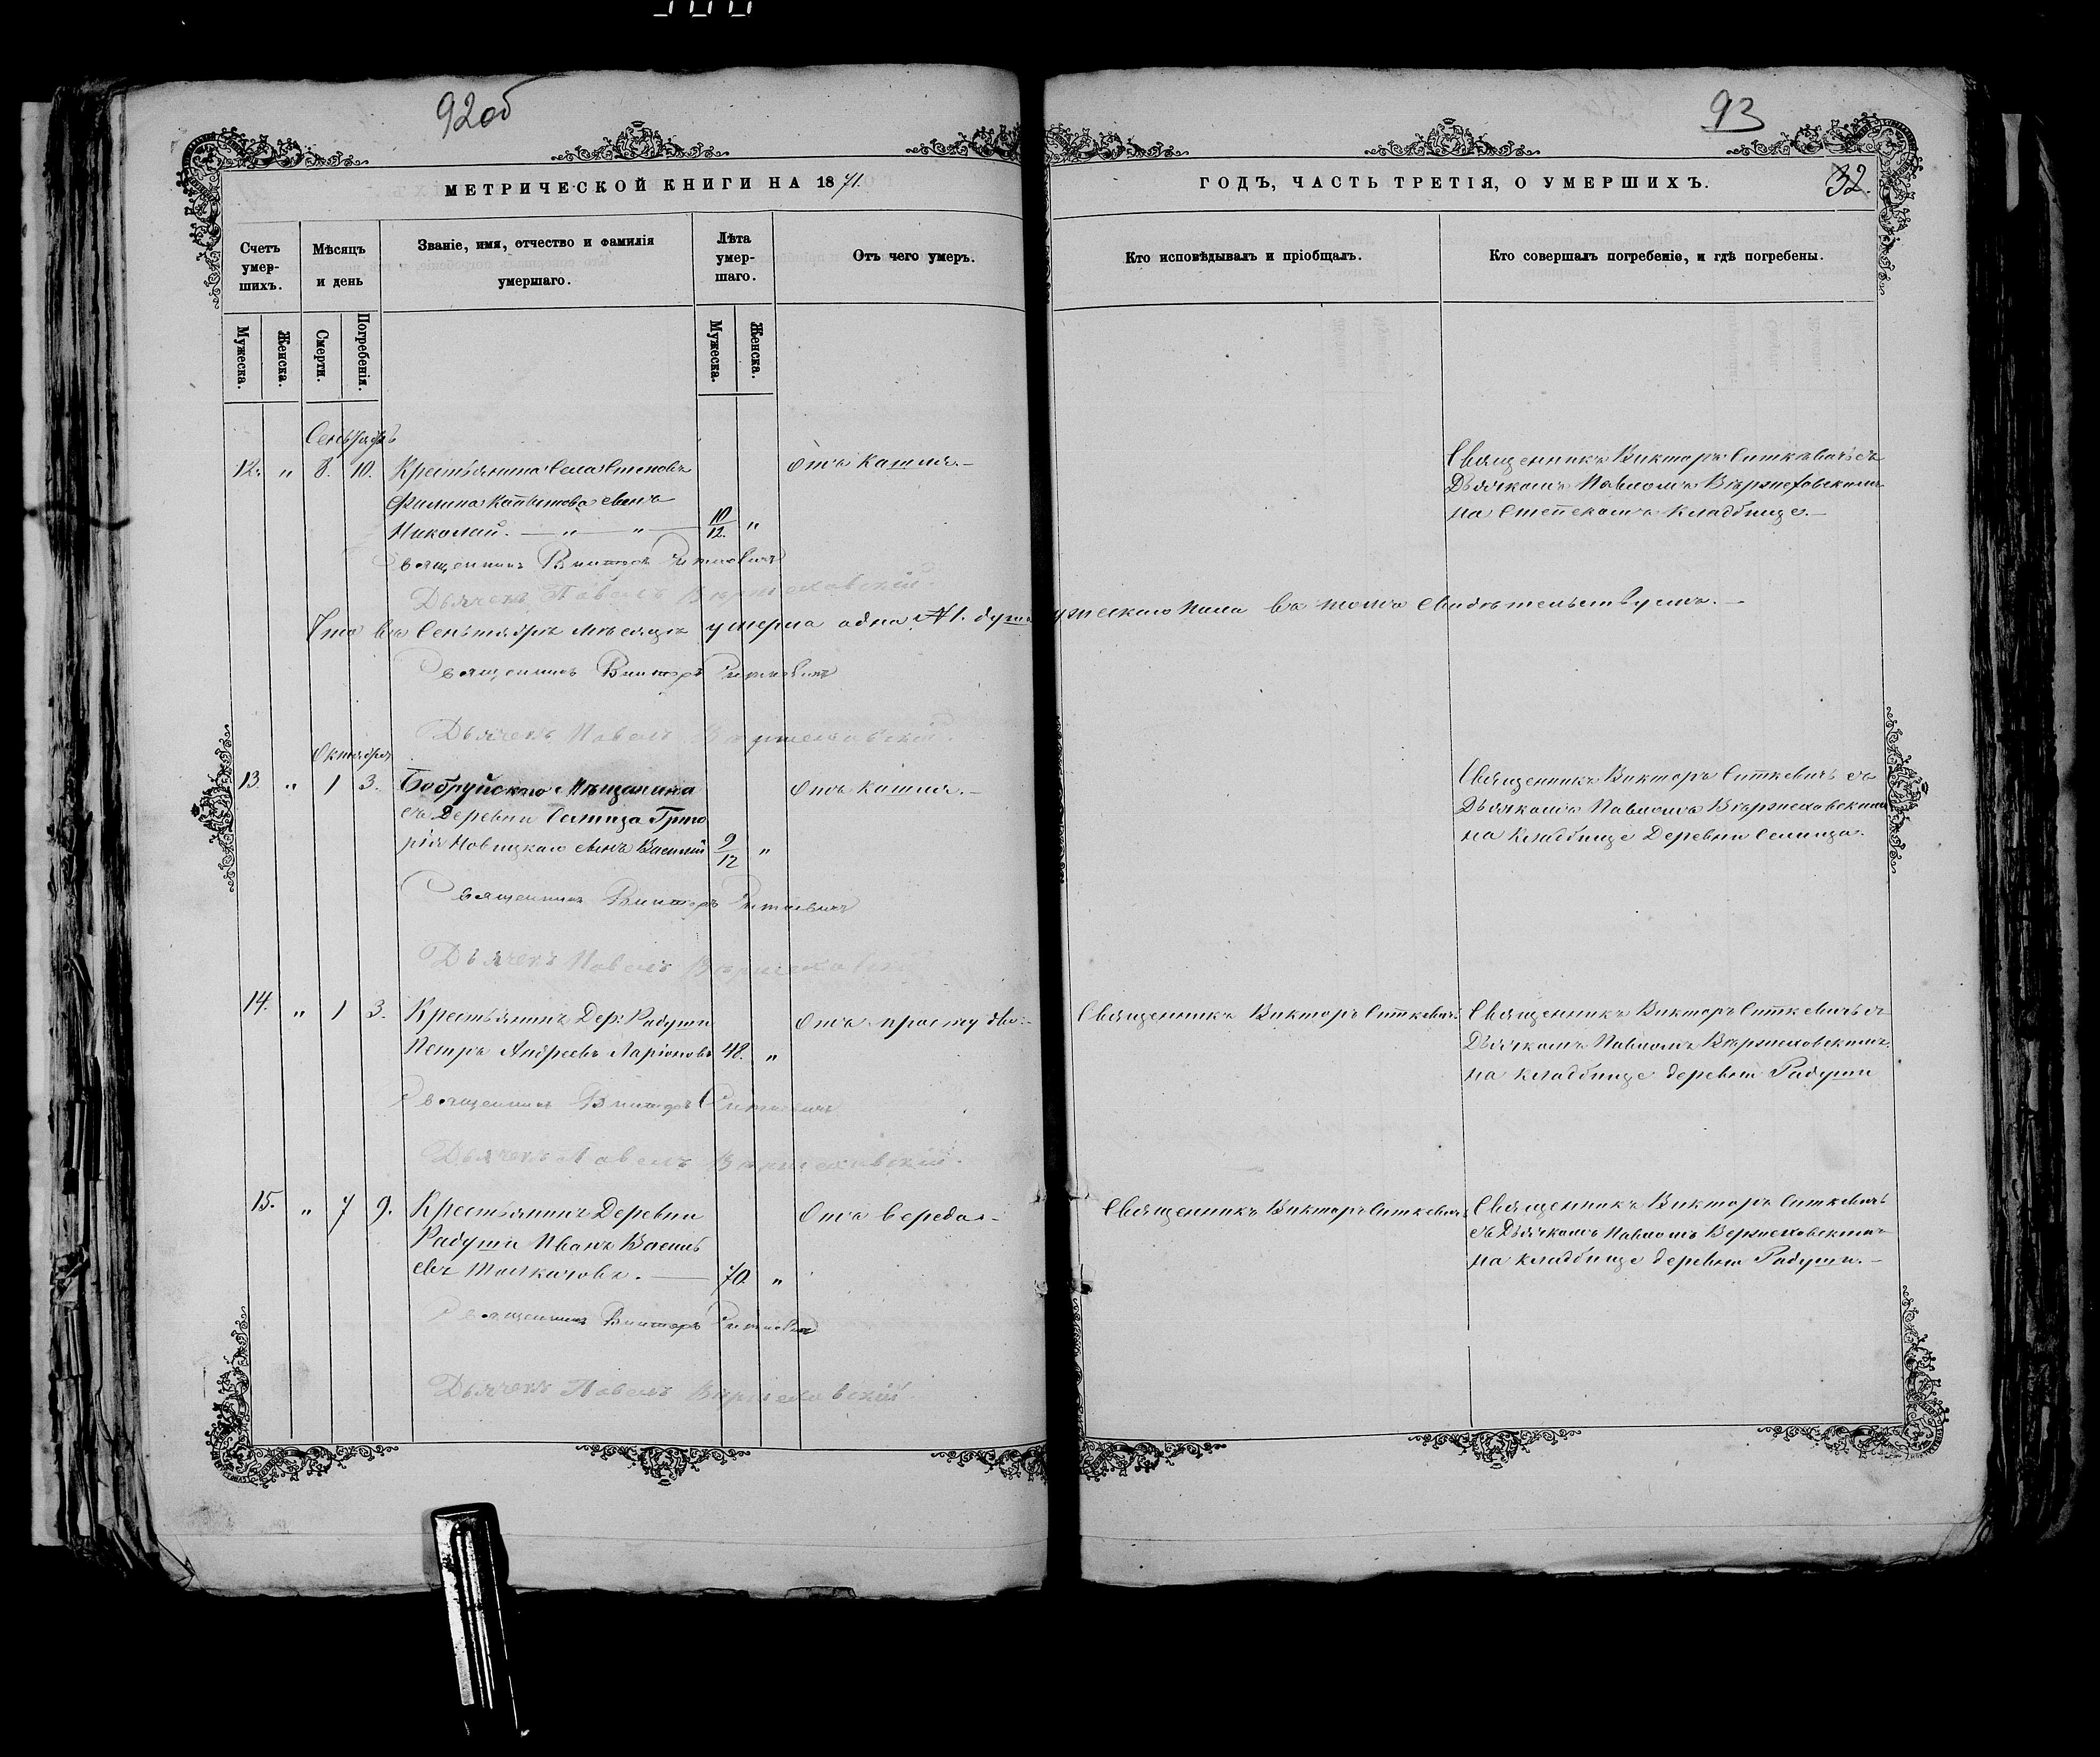 92об
93
МЕТРИЧЕСКОЙ КНИГИ НА 1871.
ГОДЪ, ЧАСТЬ ТРЕТІЯ, О УМЕРШИХЪ.
32.
Счетъ умер-шихъ.
Мѣсяцъ и день
Званіе, имя, отчество и фамилія умершаго.
Лѣта умер-шаго.
Отъ чего умеръ.
Кто исповѣдывалъ и пріобщалъ.
Кто совершалъ погребеніе, и гдѣ погребены.
Мужеска.
Женска.
Смерти.
Погребенія.
Мужеска.
Женска.
Сентябрь
12. „ 8. 10. Крестьянина села
Филипа сынъ
Николай. — „ — „ — 10/12. „
отъ кашля.—
Священникъ Викторъ Ситкевичъ съ
Дьячкомъ Павломъ Вержеховскимъ
на кладбище.—
Священникъ Викторъ Ситкевичъ
Дьячекъ Павелъ Вержеховскій.
Что въ Сентябрѣ мѣсяцѣ умерла одна №1. душа мужескаго пола въ томъ свидѣтельствуемъ.—
Священникъ Викторъ Ситкевичъ
Дьячекъ Павелъ Вержеховскій.
Октября
13. „ 1 3. Бобруйскаго Мѣщанина
съ Деревни Селища Григо
рія Новицкаго сынъ Василій 9/12 „
Отъ кашля.—
Священникъ Викторъ Ситкевичъ съ
Дьячкомъ Павломъ Вержеховскимъ
на кладбище Деревни Селища.
Священникъ Викторъ Ситкевичъ
Дьячекъ Павелъ Вержеховскій
14. „ 1 3. Крестьянинъ Дер: Радуши
Петръ Андреевъ Ларіоновъ 48. „
Отъ простуды.—
Священникъ Викторъ Ситкевичъ
Священникъ Викторъ Ситкевичъ съ
Дьячкомъ Павломъ Вержеховскимъ
на кладбище деревни Радуши
Священникъ Викторъ Ситкевичъ
Дьячекъ Павелъ Вержеховскій.
15. „ 7 9. Крестьянинъ Деревни
Радуши Иванъ Василь
евъ Толкачовъ. — 70. „
Отъ вереда.—
Священникъ Викторъ Ситкевичъ
Священникъ Викторъ Ситкевичъ
съ Дьячкомъ Павломъ Вержеховскимъ
на кладбище деревни Радуши.—
Священникъ Викторъ Ситкевичъ
Дьячекъ Павелъ Вержеховскій.